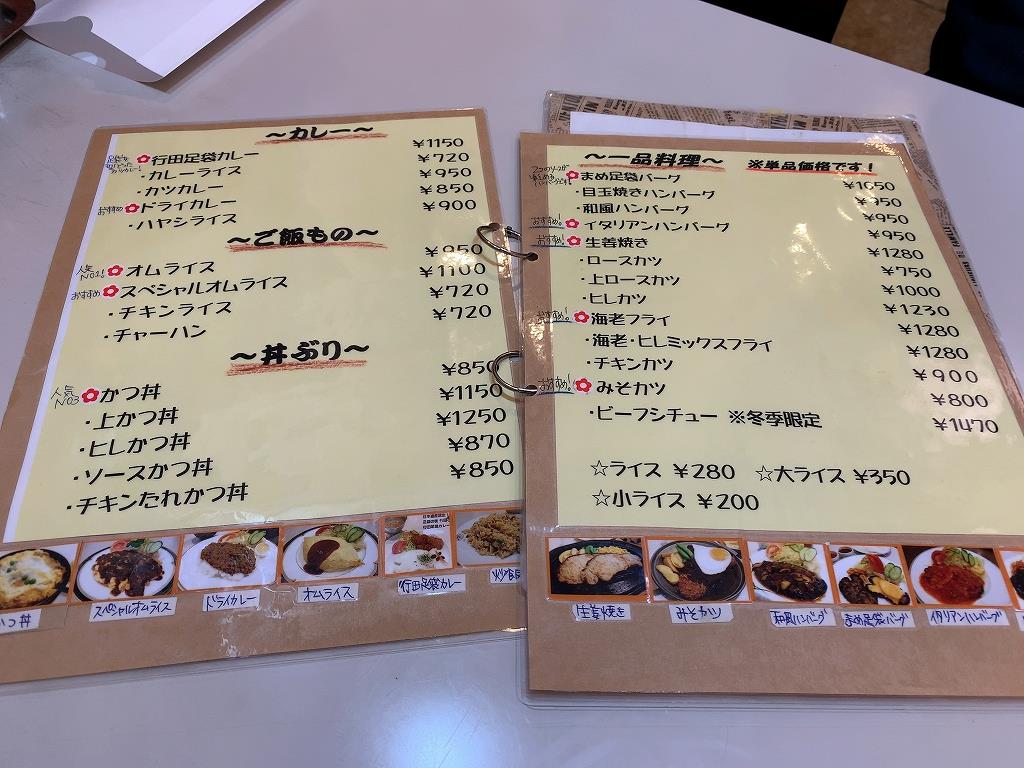 ～カレー～
行田足袋カレー ¥1150
・カレーライス ¥720
・カツカレー ¥950
おすすめ ドライカレー ¥850
・ハヤシライス ¥900
～ご飯もの～
人気No1! オムライス ¥950
おすすめ スペシャルオムライス ¥1100
・チキンライス ¥720
・チャーハン ¥720
～丼ぶり～
人気No3 かつ丼 ¥850
・上かつ丼 ¥1150
・ヒレかつ丼 ¥1250
・ソースかつ丼 ¥870
・チキンたれかつ丼 ¥850
かつ丼 スペシャルオムライス ドライカレー オムライス 行田足袋カレー
～一品料理～ ※単品価格です！
まめ足袋バーグ ¥1050
・目玉焼きハンバーグ ¥950
・和風ハンバーグ ¥950
おすすめ! イタリアンハンバーグ ¥950
おすすめ! 生姜焼き ¥1280
・ロースカツ ¥750
・上ロースカツ ¥1000
・ヒレカツ ¥1230
おすすめ! 海老フライ ¥1280
・海老・ヒレミックスフライ ¥1280
・チキンカツ ¥900
おすすめ! みそカツ ¥800
・ビーフシチュー ※冬季限定 ¥1470
☆ライス ¥280 ☆大ライス ¥350
☆小ライス ¥200
生姜焼き みそカツ 和風ハンバーグ まめ足袋バーグ イタリアンハンバーグ